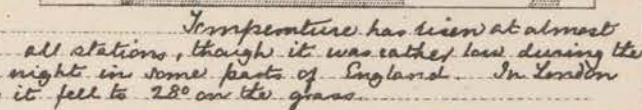 Temperature has risen at almost
all stations, though it was rather low during the
night in some parts of England. In London
it fell to 28° on the grass.